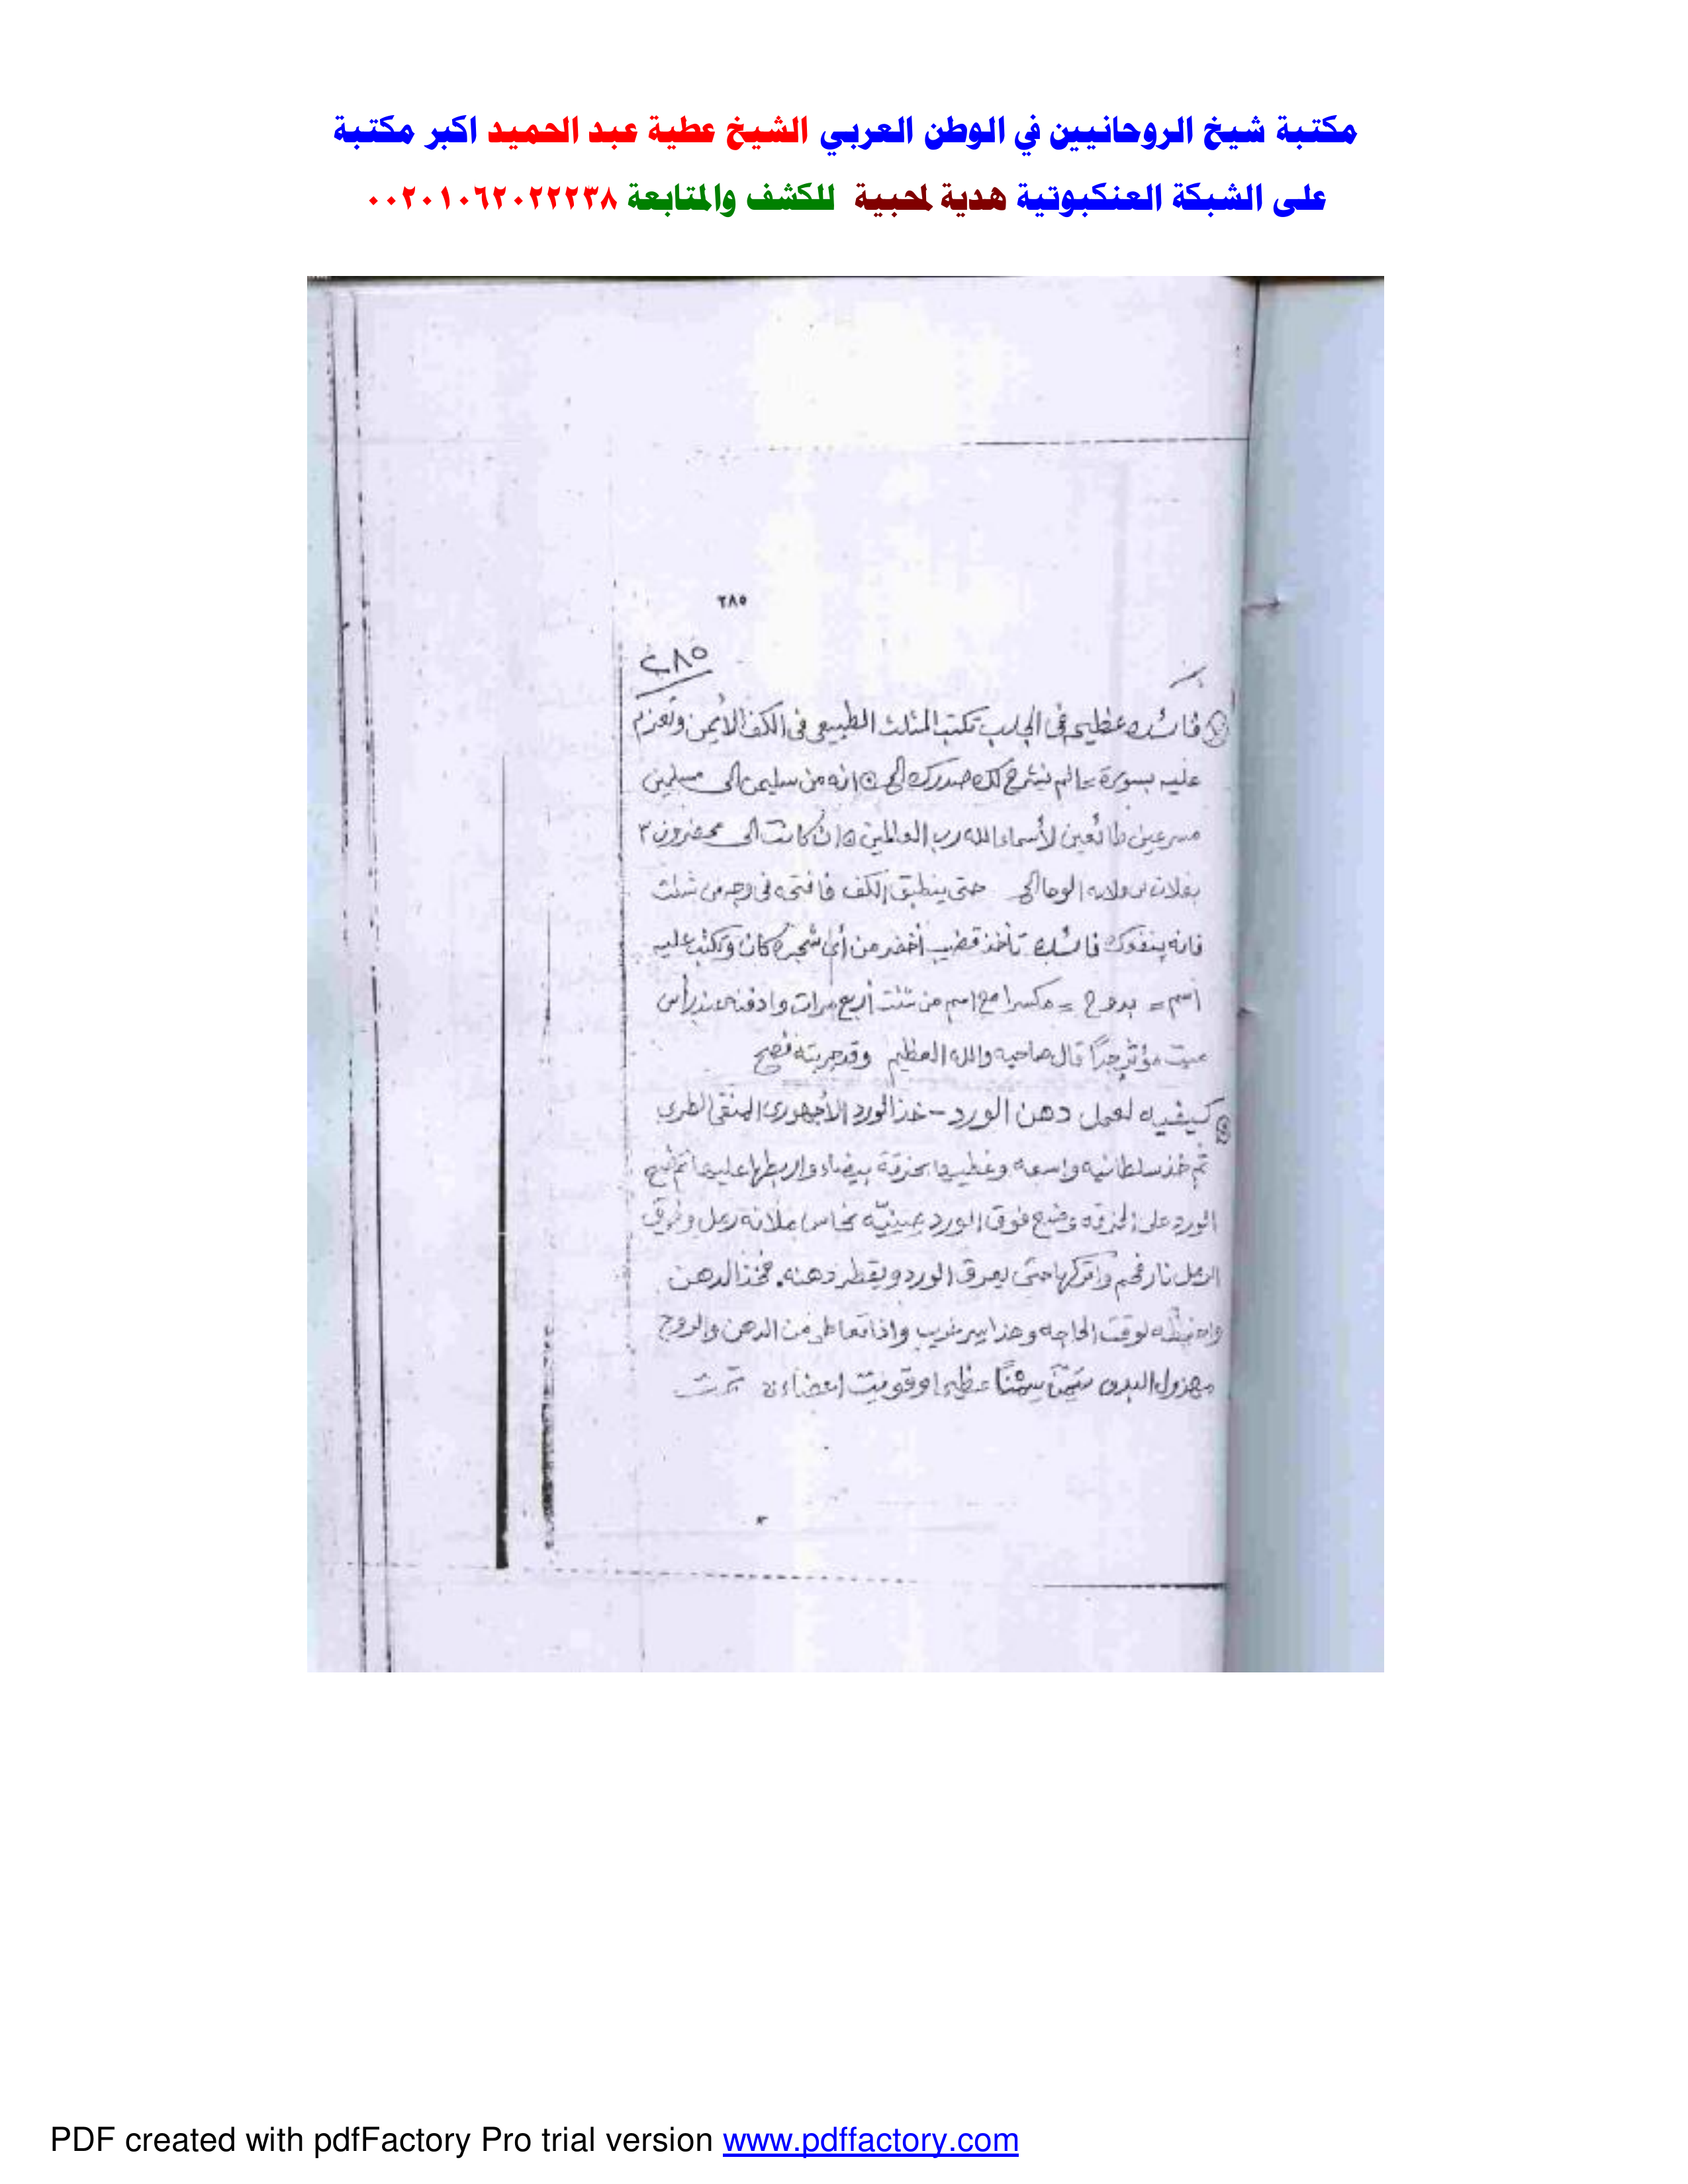 مكتبة شيخ الروحانيين في الوطن العربي الشيخ عطية عبد الحميد اكبر مكتبة
على الشبكة العنكبوتية هدية لمحبية للكشف والمتابعة ٠٠٢٠١٠٦٢٠٢٢٢٣٨
٢٨٥
٢٨٥
فائده عظيمه فى الجلب تكتب المثلث الطبيعى فى الكف الأيمن وتعزم
عليه بسورة الم نشرح لك صدرك الخ انه من سليمن الى مسلمين
مسرعين طائعين لأسماء الله رب العالمين ان كانت الى محضرون ٣
بفلان الوحا الخ حتى ينطبق الكف فافتحه فى وجه من شئت
فانه فائده تأخذ قضيب أخضر من أى شجره كان وتكتب عليه
اسم = بدوح = مكسرا مع اسم من شئت أربع مرات وادفنه عند رأس
ميت مؤثر جدًا قال صاحبه والله العظيم وقد جربته فصح
كيفيه لعمل دهن الورد - خذ الورد المنقى الطرى
ثم خذ سلطانيه واسعه وغطيها بخرقة بيضاء واربطها عليها ثم ضع
الورد على الخرقه وضع فوق الورد صينيّه نحاس ملانه رمل وفوق
الرمل نار فحم واتركها حتى يعرق الورد ويقطر دهنه. فخذ الدهن
واحفظه لوقت الحاجه وهذا سر غريب واذا تعاطى من الدهن
مهزول البدن سَمِنَ سِمْنًا عظيما وقويت اعضاءه تمت
PDF created with pdfFactory Pro trial version www.pdffactory.com